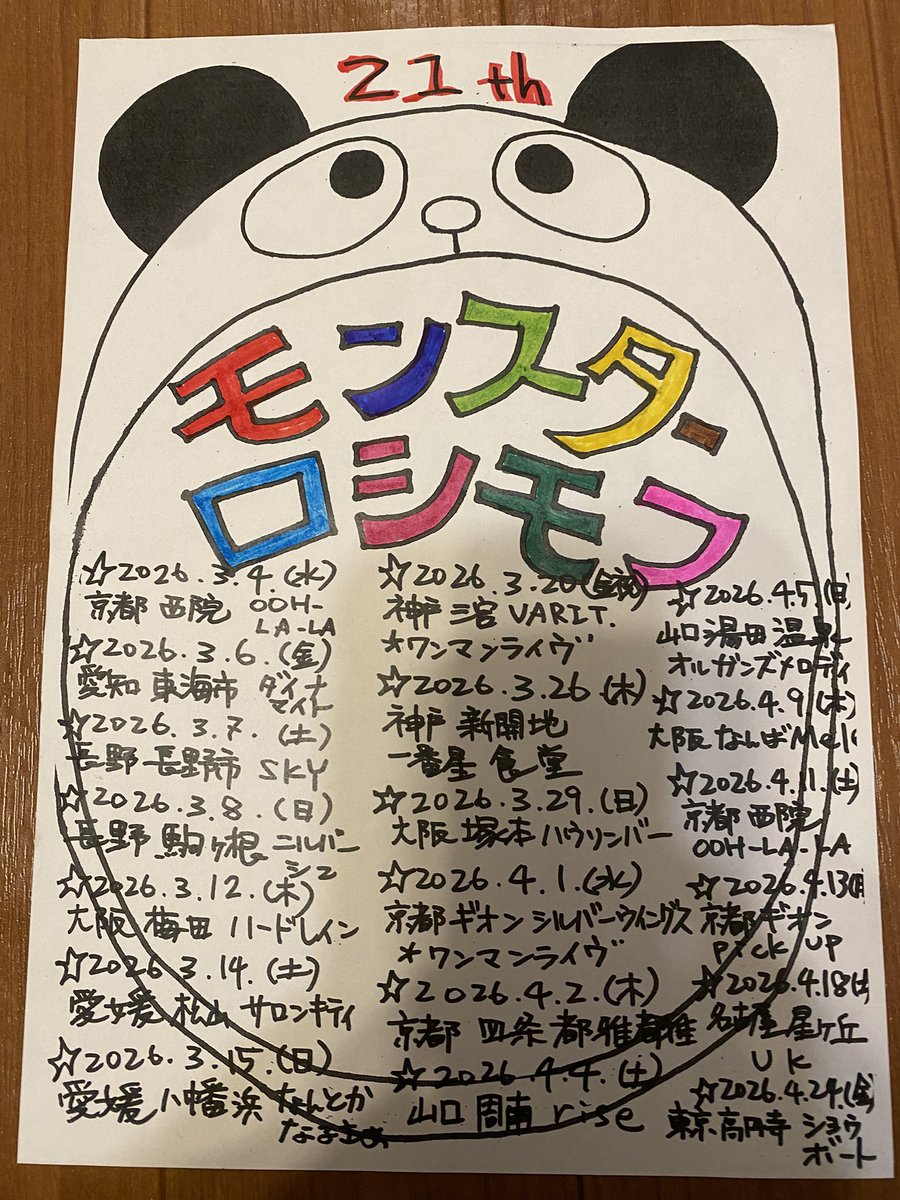 21th
モンスター
ロシモフ
☆2026.3.4.(水)
京都 西院 OOH-
LA-LA
☆2026.3.6.(金)
愛知 東海市 ダイナ
マイト
☆2026.3.7.(土)
長野 長野市 SKY
☆2026.3.8.(日)
長野 駒ヶ根 ニルバー
シュ
☆2026.3.12.(木)
大阪 梅田 ハードレイン
☆2026.3.14.(土)
愛媛 松山 サロンキティ
☆2026.3.15.(日)
愛媛 八幡浜 なんとか
☆2026.3.20(金祝)
神戸 三宮 VARIT.
*ワンマンライヴ
☆2026.3.26.(木)
神戸 新開地
一番星 食堂
☆2026.3.29.(日)
大阪 塚本 ハウリンバー
☆2026.4.1.(水)
京都 ギオン シルバーウイングス
*ワンマンライヴ
☆2026.4.2.(木)
京都 四条 都雅都雅
☆2026.4.4.(土)
山口 周南 rise
☆2026.4.5(日)
山口 湯田温泉
オルガンズメロディ
☆2026.4.9.(木)
大阪 なんばMele
☆2026.4.11.(土)
京都 西院
OOH-LA-LA
☆2026.4.13(月)
京都 ギオン
pick up
☆2026.4.18(土)
名古屋 星ヶ丘
UK
☆2026.4.24(金)
東京.高円寺 ショウ
ボート